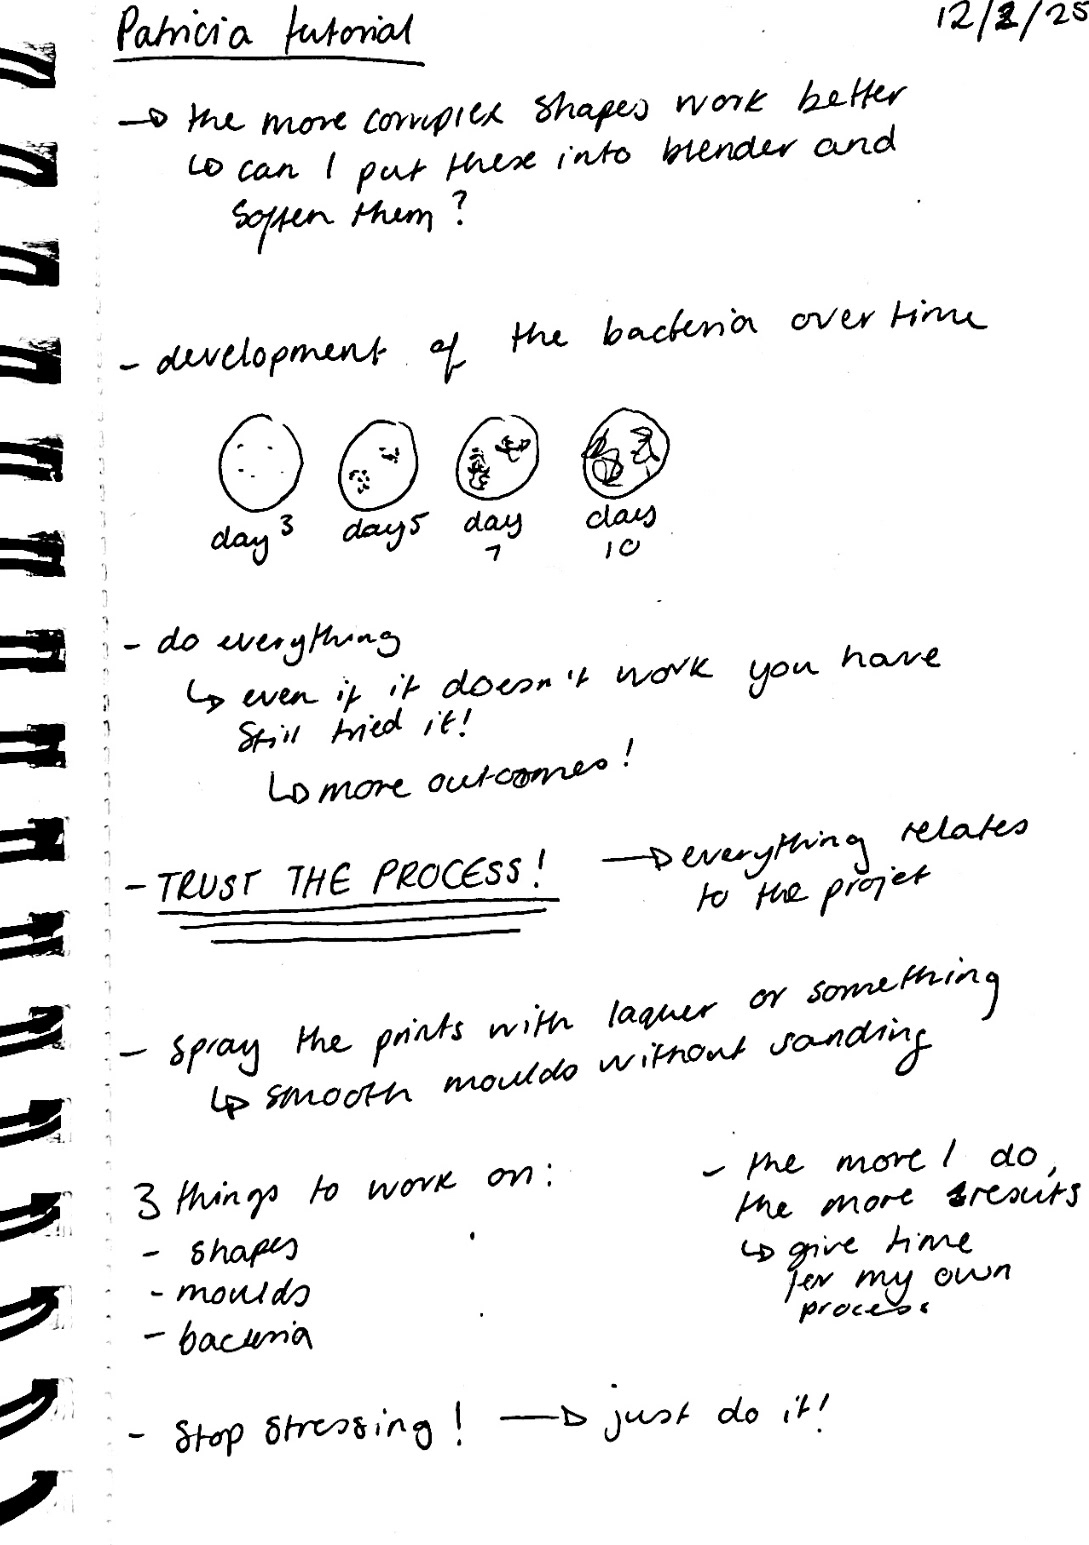 Patricia tutorial
12/2/25
→ the more complex shapes work better
↳ can I put these into blender and
soften them?
- development of the bacteria over time
day 3
day 5
day
7
day
10
- do everything
↳ even if it doesn't work you have
still tried it!
↳ more outcomes!
- TRUST THE PROCESS!
→ everything relates
to the projet
- spray the prints with laquer or something
↳ smooth moulds without sanding
3 things to work on:
- shapes
- moulds
- bacteria
- the more I do,
the more results
↳ give time
for my own
process.
- Stop stressing! → just do it!